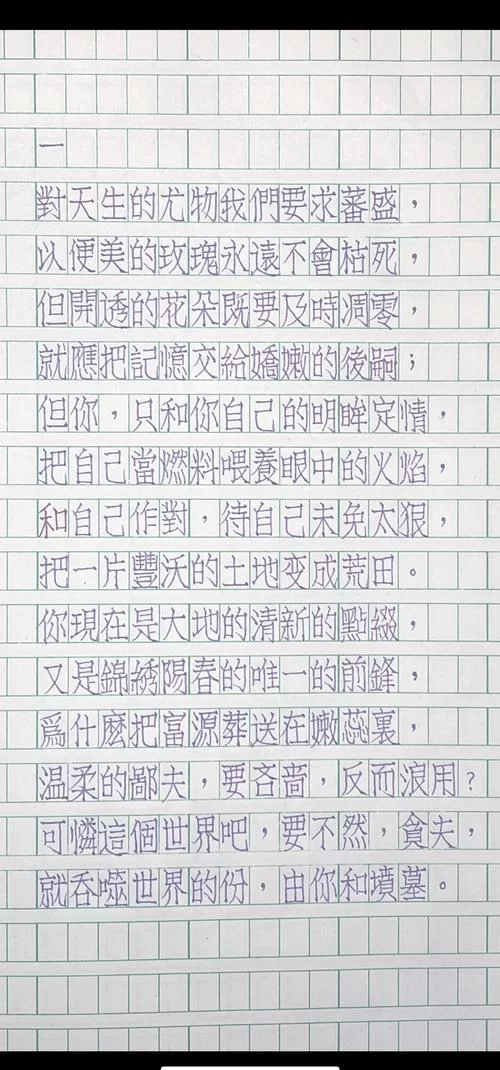 一
對天生的尤物我們要求蕃盛，
以便美的玫瑰永遠不會枯死，
但開透的花朵既要及時凋零，
就應把記憶交給嬌嫩的後嗣；
但你，只和你自己的明眸定情，
把自己當燃料喂養眼中的火焰，
和自己作對，待自己未免太狠，
把一片豐沃的土地变成荒田。
你現在是大地的清新的點綴，
又是錦綉陽春的唯一的前鋒，
爲什麽把富源葬送在嫩蕊裏，
温柔的鄙夫，要吝嗇，反而浪用？
可憐這個世界吧，要不然，貪夫，
就吞噬世界的份，由你和墳墓。